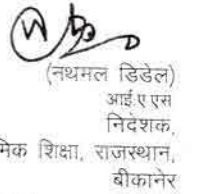 (नथमल डिडेल)
आई.ए.एस
निदेशक,
मिक शिक्षा, राजस्थान,
बीकानेर